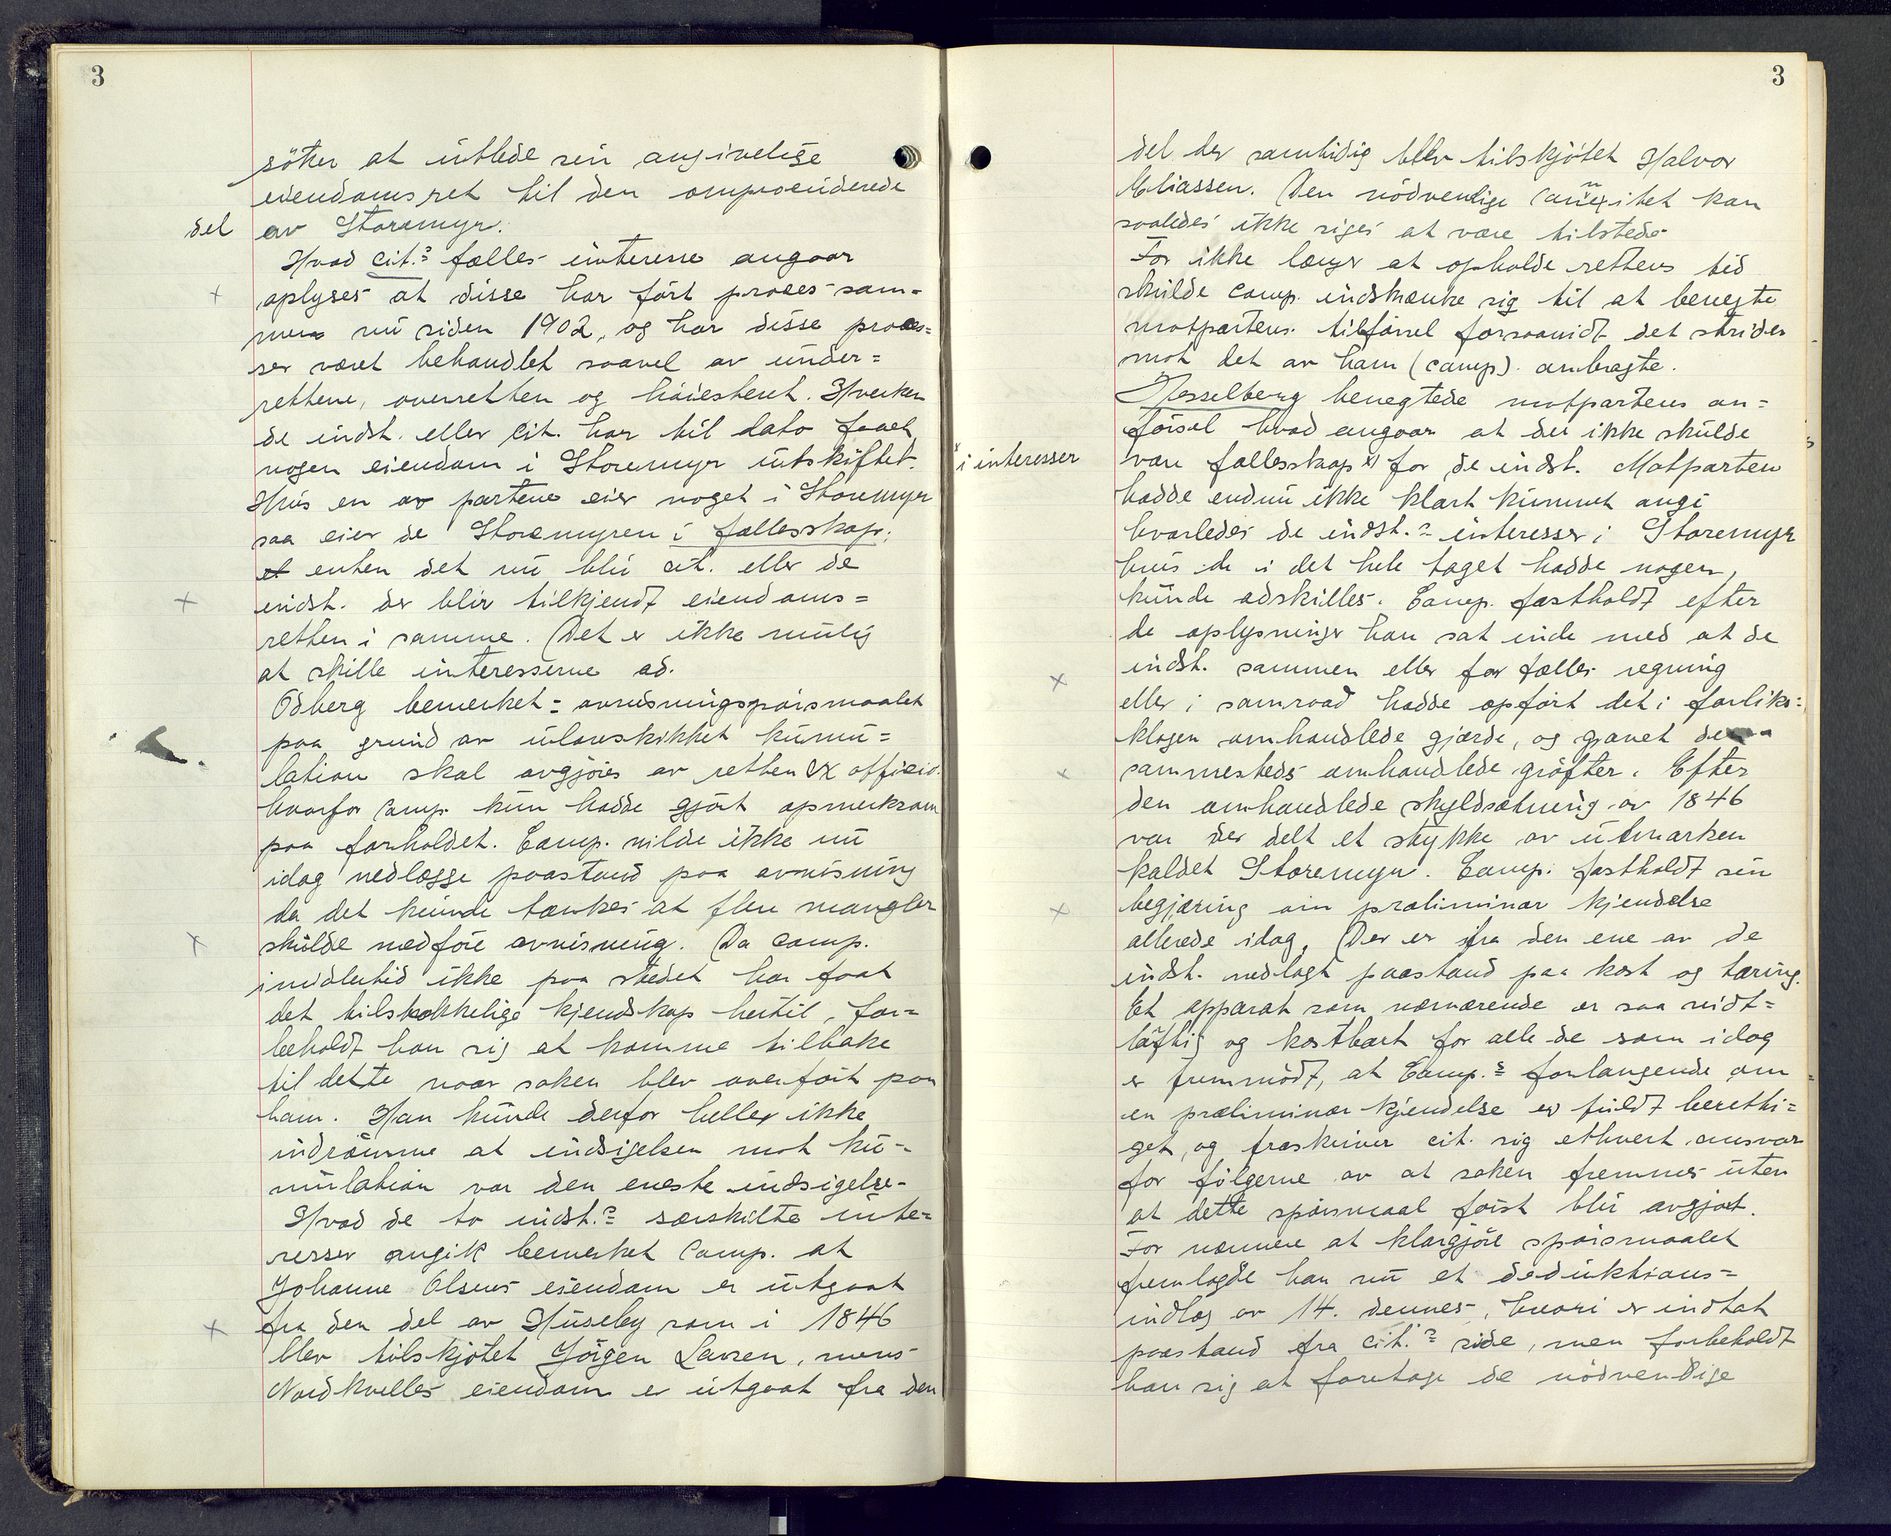 3
søker at utlede sin angivelige
eiendomsret til den omprocederede
del av Storemyr.
Hvad cit.s fælles interesse angaar
oplyses at disse har ført proces sam-
men nu siden 1902, og har disse proces-
ser været behandlet saavel av under-
rettene, overretten og høiesteret. Hverken
de indst. eller cit. har til dato faaet
nogen eiendom i Storemyr utskiftet.
Hvis en av partene eier noget i Storemyr
saa eier de Storemyren i fællesskap,
enten det nu blir cit. eller de
indst. der blir tilkjendt eiendoms-
retten i samme. Det er ikke mulig
at skille interesserne ad.
Odberg bemerket: avvisningspørsmaalet
paa grund av ulovskikket kumu-
lation skal avgjøres av retten ex officio
hvorfor comp. kun hadde gjort opmerksom
paa forholdet. Comp. vilde ikke nu
idag nedlægge paastand paa avvisning
da det kunde tænkes at flere mangler
skulde medføre avvisning. Da comp.
imidlertid ikke paa stedet har faat
det tilstrekkelige kjendskap hertil, for-
beholdt han sig at komme tilbake
til dette naar saken blev overført paa
ham. Han kunde derfor heller ikke
indrømme at indsigelsen mot ku-
mulation var den eneste indsigelse.
Hvad de to indst.s særskilte inte-
resser angik bemerket comp. at
Johanne Olsens eiendom er utgaat
fra den del av Huseby som i 1846
blev tilskjøtet Jørgen Larsen, mens
Nordkvelles eiendom er utgaat fra den
3
del der samtidig blev tilskjøtet Halvor
Eliassen. Den nødvendige connexitet kan
saaledes ikke siges at være tilstede
For ikke længer at opholde rettens tid
skulde comp. indskrænke sig til at benegte
motpartens tilførsel forsaavidt det strider
mot det av ham (comp) anbragte.
Hesselberg benegtede motpartens an-
førsel hvad angaar at der ikke skulde
være fællesskap x) for de indst. Motparten
x i interesser
hadde endnu ikke klart kunnet angi
hvorledes de indst.s interesser i Storemyr
hvis de i det hele taget hadde nogen,
kunde adskilles. Comp. fastholdt efter
de oplysninger han sat inde med at de
indst. sammen eller for fælles regning
eller i samraad hadde opført det i forliks-
klagen omhandlede gjærde, og gravet de
sammesteds omhandlede grøfter. Efter
den omhandlede skyldsætning av 1846
var der delt et stykke av utmarken
kaldet Storemyr. Comp. fastholdt sin
begjæring om præliminær kjendelse
allerede idag. Der er fra den ene av de
indst. nedlagt paastand paa kost og tæring.
Et apparat som nærværende er saa vidt-
løftig og kostbart for alle de som idag
er fremmødt, at Comp.s forlangende om
en præliminær kjendelse er fuldt beretti-
get, og fraskriver cit. sig ethvert ansvar
for følgerne av at saken fremmes uten
at dette spørsmaal først blir avgjort.
For nærmere at klargjøre spørsmaalet
fremlagde han nu et deduktions-
indlæg av 14. dennes, hvori er indtat
paastand fra cit.s side, men forbeholdt
han sig at foretage de nødvendige